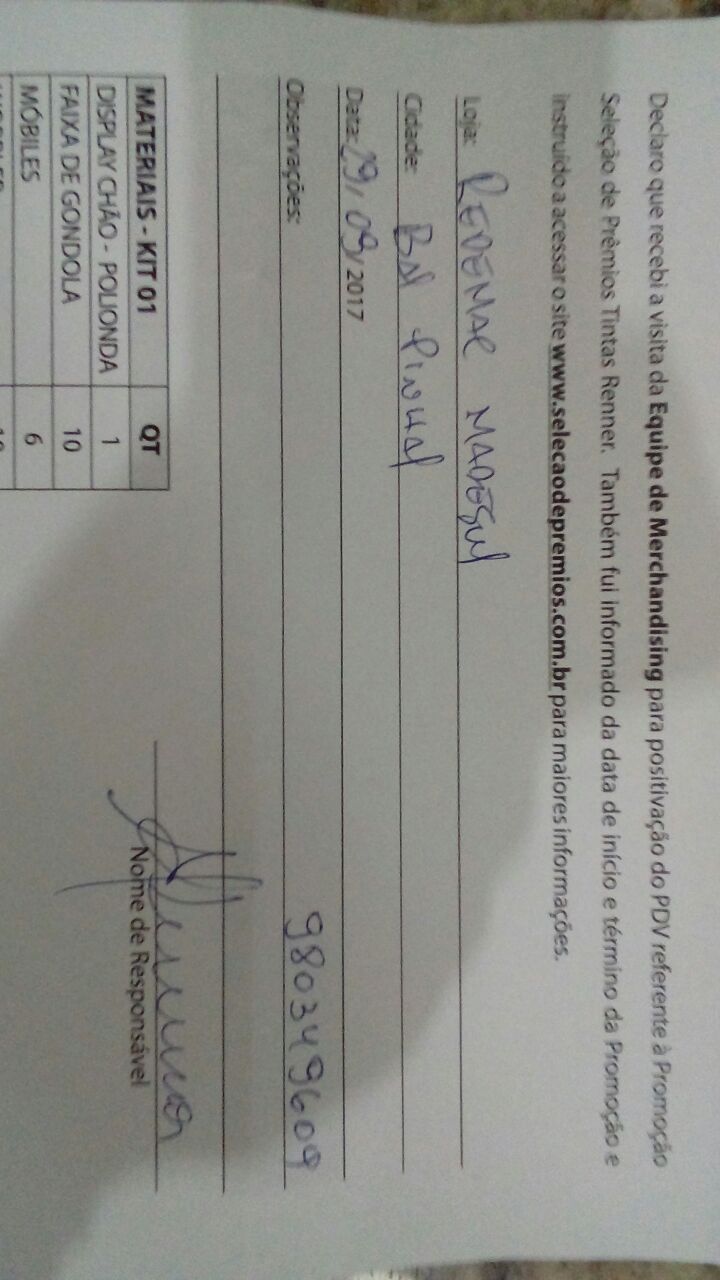 Declaro que recebi a visita da Equipe de Merchandising para positivação do PDV referente à Promoção
Seleção de Prêmios Tintas Renner. Também fui informado da data de início e término da Promoção e
instruído a acessar o site www.selecaodepremios.com.br para maiores informações.
Loja: REDEMAC MADESUL
Cidade: Bal Pinhal
Data: 29/09/2017
Observações:
980349609
MATERIAIS - KIT 01 QT
DISPLAY CHÃO - POLIONDA 1
FAIXA DE GONDOLA 10
MÓBILES 6
Nome de Responsável